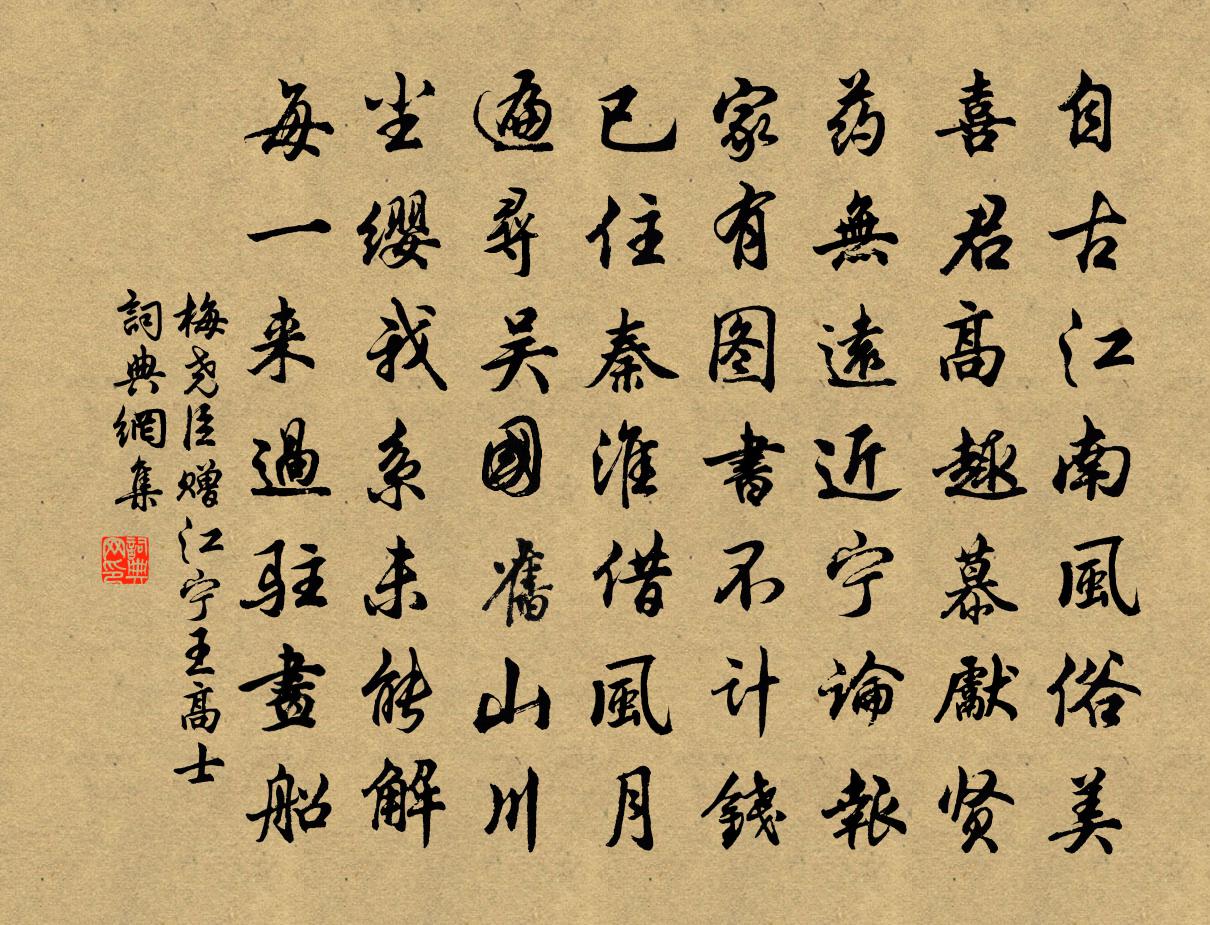 自古江南風俗美
喜君高趣慕獻贤
药無遠近宁論報
家有图書不计錢
已住秦淮借風月
遍尋吴國舊山川
尘缨我系未能解
每一来過駐畫船
梅尧臣赠江宁王高士
詞典網集
詞典网印